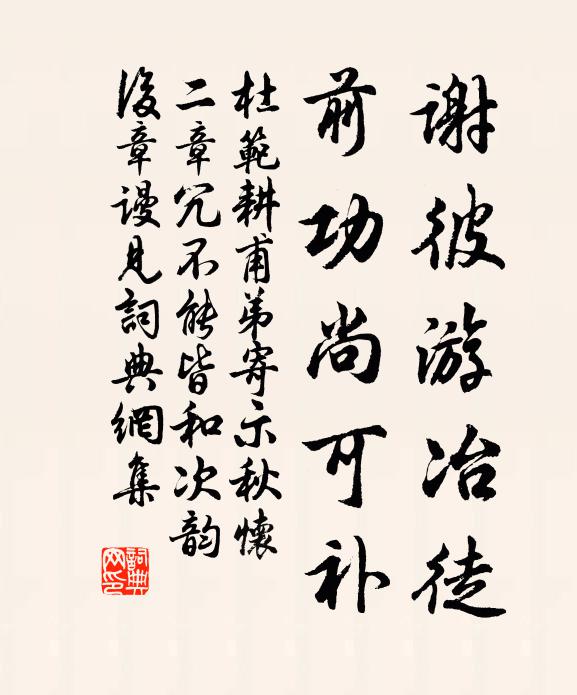 谢彼游冶徒
前功尚可补
杜範耕甫弟寄示秋懷
二章冗不能皆和次韵
後章谩见詞典網集
詞典网印